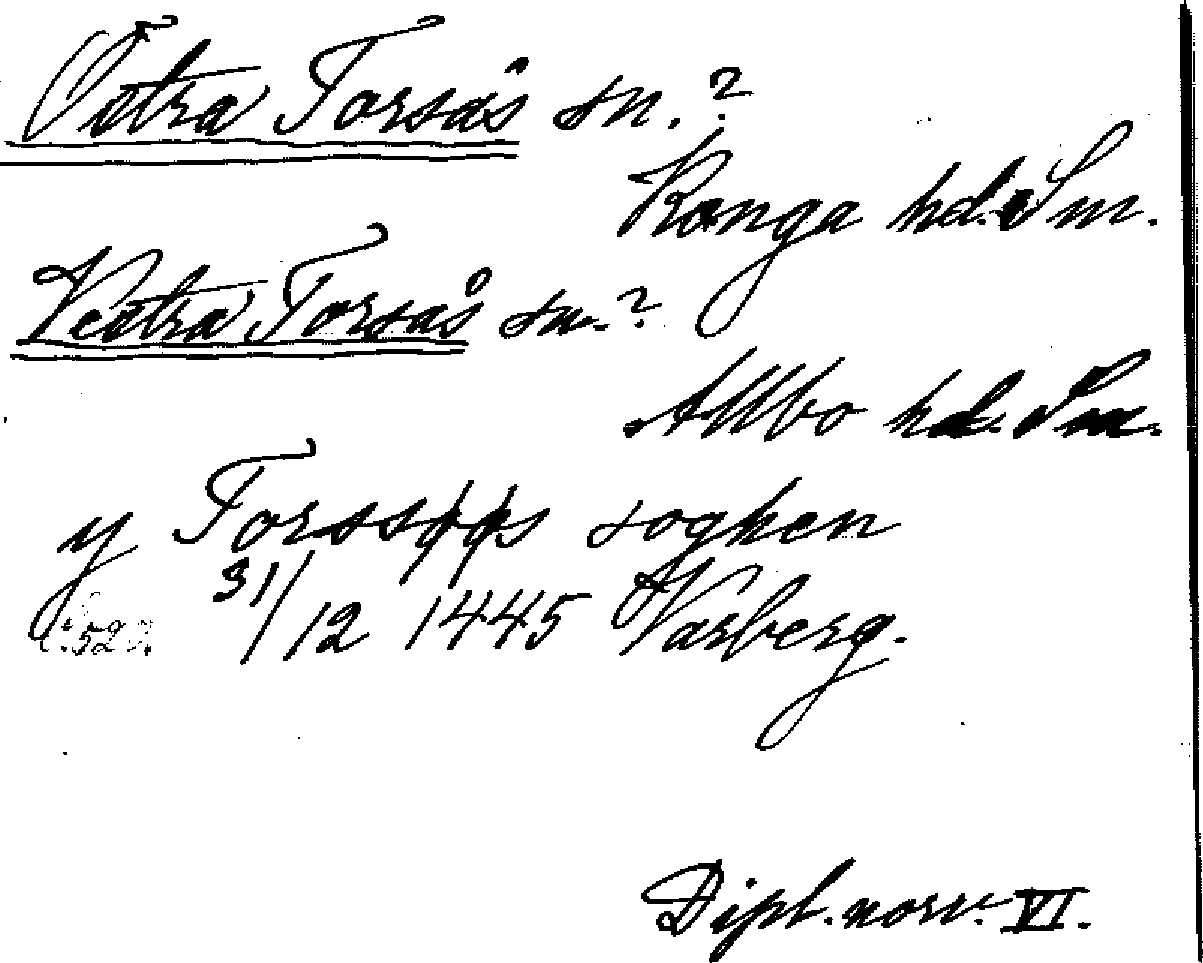 Östra Torsås sn.?
Konga hd. Sm.
Vestra Torsås sn.?
Allbo hd. Sm.
y Torssøøs soghen
31/12 1445 Varberg.
Dipl. norv. VI.